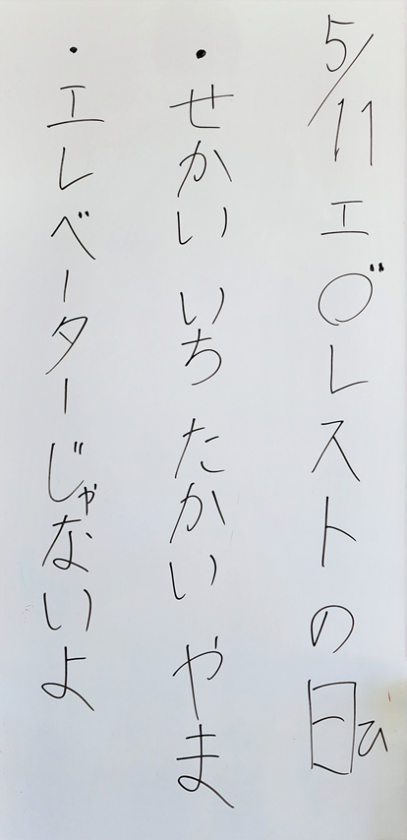 5/11 エ〇゛レストの日ひ
・せかい いち たかい やま
・エレベーターじゃないよ